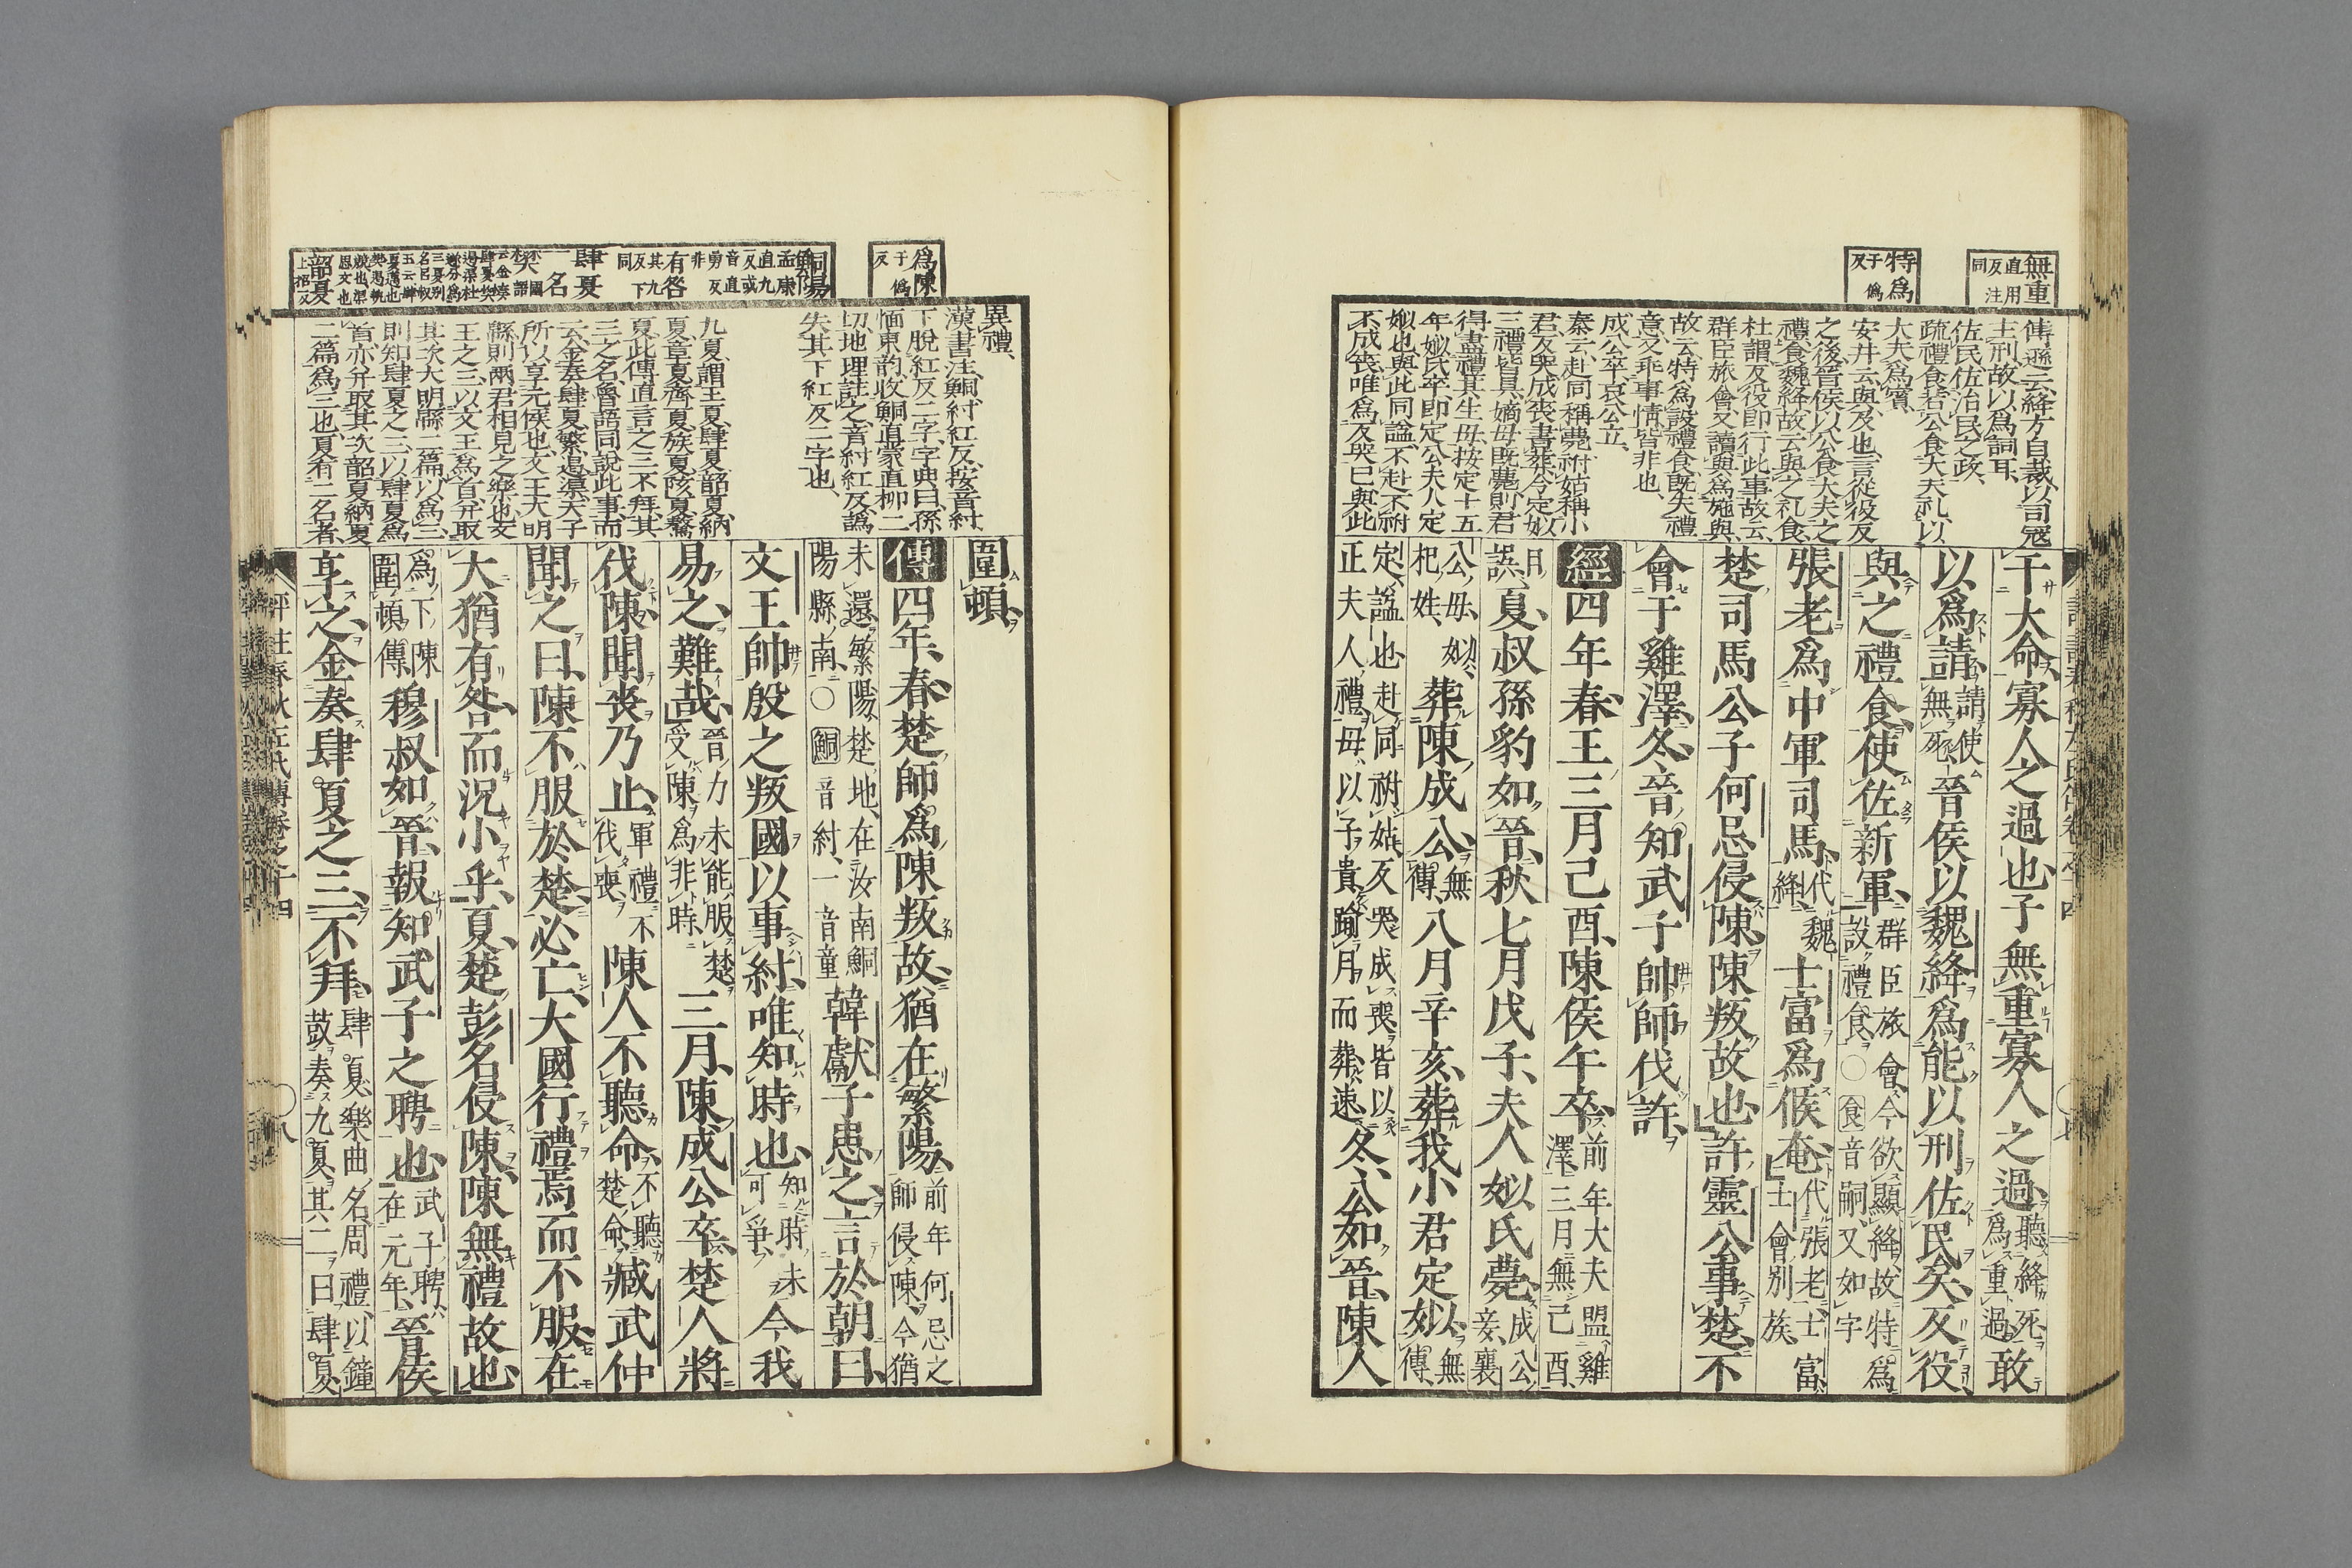 無重
直用反注同
特爲
于僞反
傳遜云絳方自裁以司寇
主刑故以爲詞耳
佐民佐治民之政
疏禮食若公食大夫礼以
大夫爲賓
安井云與及也言從役反
之後晉侯以公食大夫之
禮食魏絳故云與之礼食
杜謂反役即行此事故云
群臣旅會又讀與爲施與
故云特爲設禮食既失禮
意又乖事情皆非也
成公卒哀公立
秦云赴同稱薨祔姑稱小
君反哭成喪書葬今定姒
三禮皆具嫡母既薨則君
得盡禮其生母按定十五
年姒氏卒即定公夫人定
姒也與此同謚不赴不祔
不成喪唯爲反哭已與此
干大命寡人之過也子無重寡人之過聽絳死爲重過敢
以爲請請使無死晉侯以魏絳爲能以刑佐民矣反役
與之禮食使佐新軍群臣旅會今欲顯絳故特爲設禮食○食音嗣又如字
張老爲中軍司馬代魏絳士富爲候奄代張老士富士會別族
楚司馬公子何忌侵陳陳叛故也許靈公事楚不
會于雞澤冬晉知武子帥師伐許
經四年春王三月己酉陳侯午卒前年大夫盟雞澤三月無己酉
月誤夏叔孫豹如晉秋七月戊子夫人姒氏薨成公妾襄
公母姒杞姓葬陳成公無傳八月辛亥葬我小君定姒無傳
定謚也赴同祔姑反哭成喪皆以正夫人禮母以子貴踰月而葬速冬公如晉陳人
爲陳
于僞反
鮦陽
孟康直九反或音直勇反
有咎
其九反下同
肆夏
一名
韶夏
上招反
異禮
漢書注鮦紂紅反按音紂
下脫紅反二字字典曰孫
愐東韵收鮦直蒙直柳二
切地理註之音紂紅反譌
失其下紅反二字也
九夏謂王夏肆夏韶夏納
夏章夏齊夏族夏陔夏驁
夏此傳直言之三不拜其
三之名魯語同說此事而
云金奏肆夏繁遏渠天子
所以享元侯也文王大明
緜則兩君相見之樂也文
王之三以文王爲首并取
其次大明緜二篇以爲三
則知肆夏之三以肆夏爲
首亦并取其次韶夏納夏
二篇爲三也夏有二名者
圍頓
傳四年春楚師爲陳叛故猶在繁陽前年何忌之師侵陳今猶
未還繁陽楚地在汝南鮦陽縣南○鮦音紂一音童韓獻子患之言於朝曰
文王帥殷之叛國以事紂唯知時也知時未可爭今我
易之難哉晉力未能服楚受陳爲非時三月陳成公卒楚人將
伐陳聞喪乃止軍禮不伐喪陳人不聽命不聽楚命臧武仲
聞之曰陳不服於楚必亡大國行禮焉而不服在
大猶有咎而況小乎夏楚彭名侵陳陳無禮故也
爲下陳圍頓傳穆叔如晉報知武子之聘也武子聘在元年晉侯
享之金奏肆夏之三不拜肆夏樂曲名周禮以鐘鼓奏九夏其二曰肆夏
評註春秋左氏傳卷之十四
八